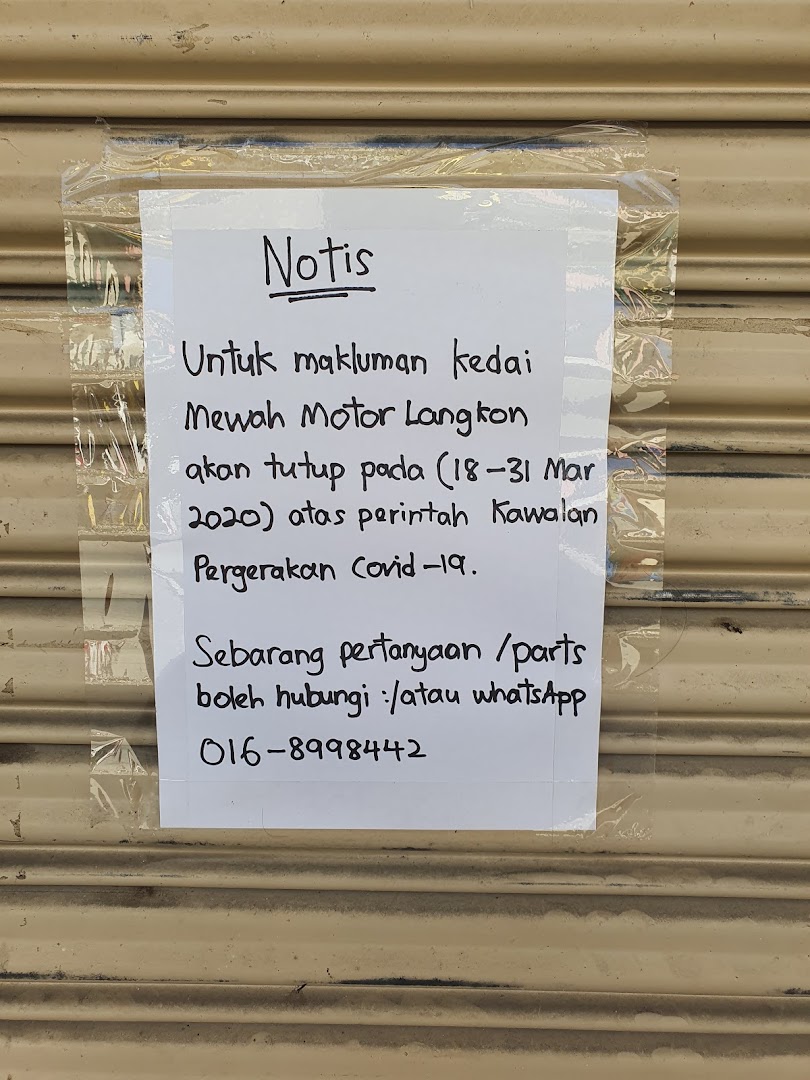 Notis
Untuk makluman kedai
Mewah Motor Langkon
akan tutup pada (18-31 Mar
2020) atas perintah Kawalan
Pergerakan Covid-19.
Sebarang pertanyaan /parts
boleh hubungi :/atau whatsApp
016-8998442